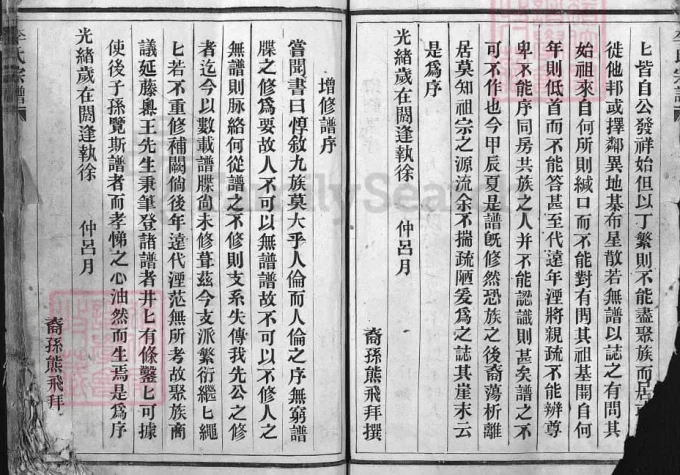 匕皆自公發祥始但以丁繁則不能盡聚族而居
徙他邦或擇鄰異地棊布星散若無譜以誌之有問其
始祖來自何所則緘口而不能對有問其祖基開自何
年則低首而不能答甚至代遠年湮將親疏不能辨尊
卑不能序同房共族之人并不能認識則甚矣譜之不
可不作也今甲辰夏是譜旣修然恐族之後裔蕩析離
居莫知祖宗之源流余不揣疏陋爰爲之誌其崖末云
是爲序
光緒歲在閼逢執徐 仲呂月
裔孫熊飛拜撰
增修譜序
嘗聞書曰惇敘九族莫大乎人倫而人倫之序無窮譜
牒之修爲要故人不可以無譜譜故不可以不修人之
無譜則脉絡何從譜之不修則支系失傳我先公之修
者迄今以數載譜牒尙未修葺茲今支派繁衍繼匕繩
匕若不重修補闕倘後年遠代湮茫無所考故聚族商
議延藤輿王先生秉筆登諸譜者井匕有條鑿匕可據
使後子孫覽斯譜者而孝悌之心油然而生焉是爲序
光緒歲在閼逢執徐 仲呂月
裔孫熊飛拜
李氏宗譜
FamilySearch